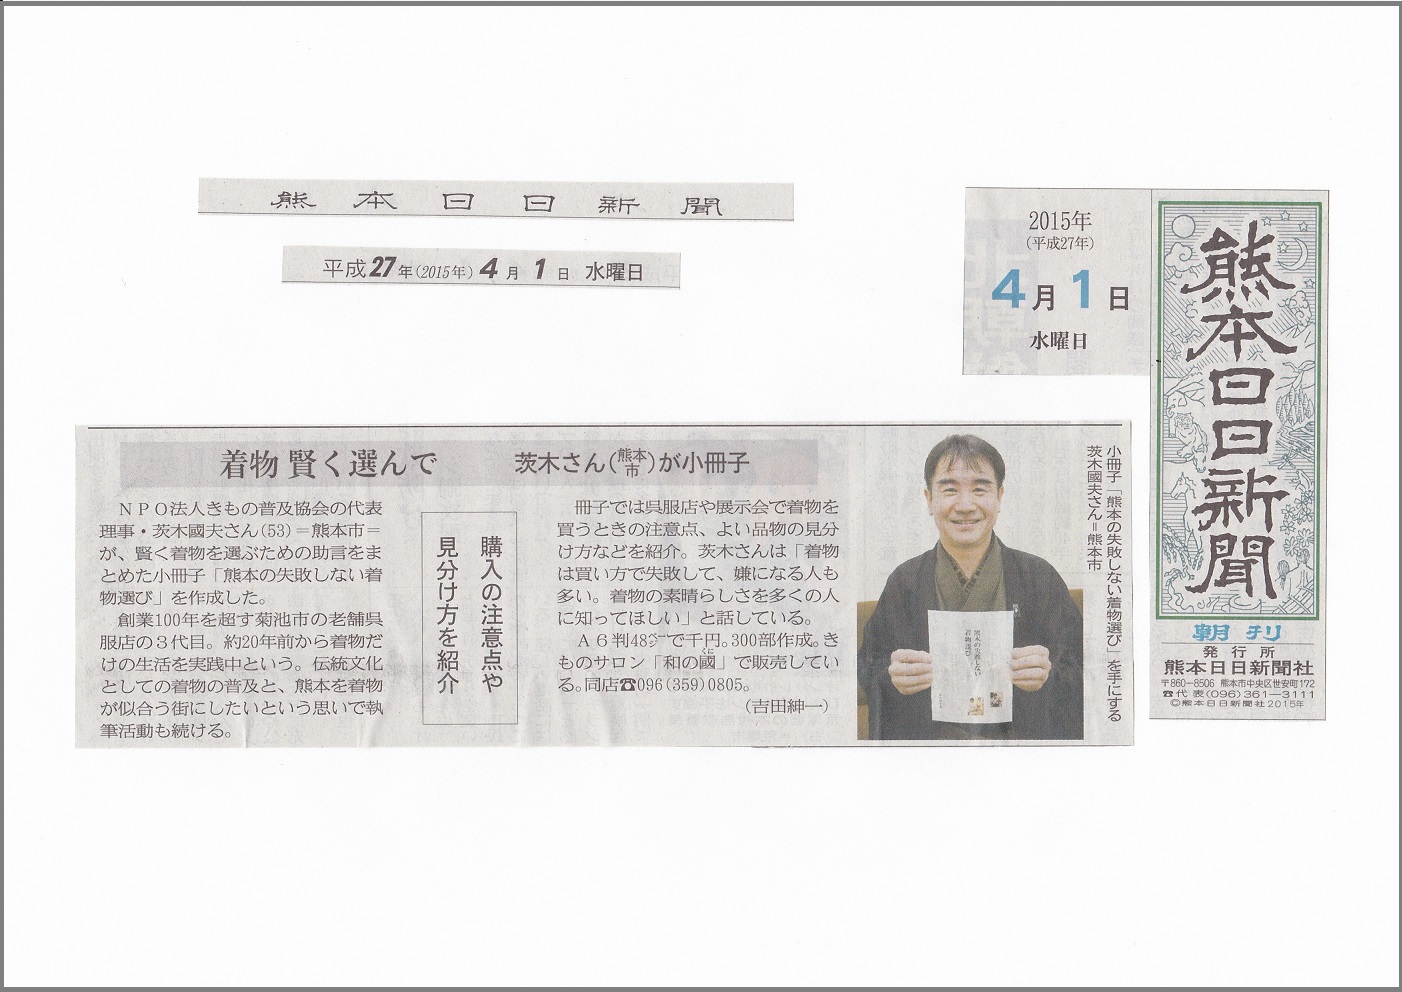 熊本日日新聞
平成27年(2015年)4月1日 水曜日
2015年
(平成27年)
4月1日
水曜日
熊本日日新聞
朝刊
発行所
熊本日日新聞社
〒860−8506 熊本市中央区世安町172
☎代表(096)361−3111
©熊本日日新聞社2015年
着物 賢く選んで 茨木さん(熊本市)が小冊子
NPO法人きもの普及協会の代表
理事・茨木國夫さん(53)=熊本市=
が、賢く着物を選ぶための助言をま
とめた小冊子「熊本の失敗しない着
物選び」を作成した。
創業100年を超す菊池市の老舗呉
服店の3代目。約20年前から着物だ
けの生活を実践中という。伝統文化
としての着物の普及と、熊本を着物
が似合う街にしたいという思いで執
筆活動も続ける。
購入の注意点や
見分け方を紹介
冊子では呉服店や展示会で着物を
買うときの注意点、よい品物の見分
け方などを紹介。茨木さんは「着物
は買い方で失敗して、嫌になる人も
多い。着物の素晴らしさを多くの人
に知ってほしい」と話している。
A6判48㌻で千円。300部作成。き
ものサロン「和の國(くに)」で販売してい
る。同店☎096(359)0805。
(吉田紳一)
小冊子「熊本の失敗しない着物選び」を手にする
茨木國夫さん=熊本市
熊本の失敗しない
着物選び